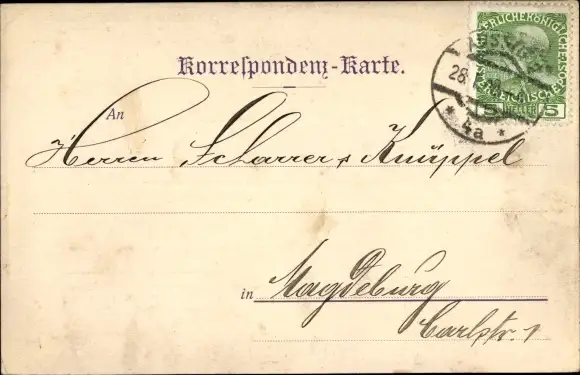 Korrespondenz-Karte.
An
Herren Scharrer & Knüppel
in Magdeburg
Carlstr. 1
KAISERLICHE KÖNIGLICHE
ÖSTERREICHISCHE
5 HELLER 5
28.
* 4a *